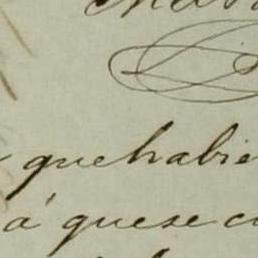 que habie
á que se c